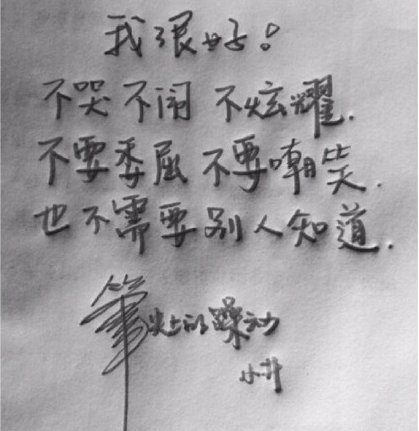 我很好！
不哭不闹 不炫耀.
不要委屈 不要嘲笑.
也不需要别人知道.
筆尖上的躁动
小井